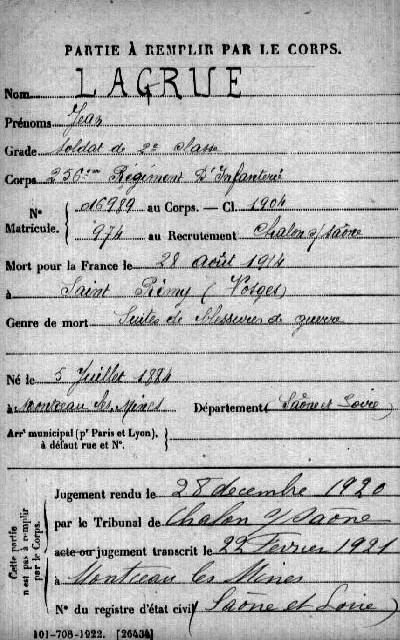 PARTIE À REMPLIR PAR LE CORPS.
Nom LAGRUE
Prénoms Jean
Grade Soldat de 2e Classe
Corps 256ème Régiment D'Infanterie
N° Matricule. 016989 au Corps. — Cl. 1904
974 au Recrutement Chalon s/Saône
Mort pour la France le 28 août 1914
à Saint Rémy (Vosges)
Genre de mort Suites de blessures de guerre
Né le 5 Juillet 1884
à Montceau les Mines Département (Saône et Loire)
Arrt municipal (pr Paris et Lyon), à défaut rue et N°.
Cette partie n'est pas à remplir par le Corps.
Jugement rendu le 28 decembre 1920
par le Tribunal de Chalon s/Saône
acte ou jugement transcrit le 22 Fevrier 1921
à Montceau les Mines
N° du registre d'état civil (Saône et Loire)
101-708-1922. [26434]